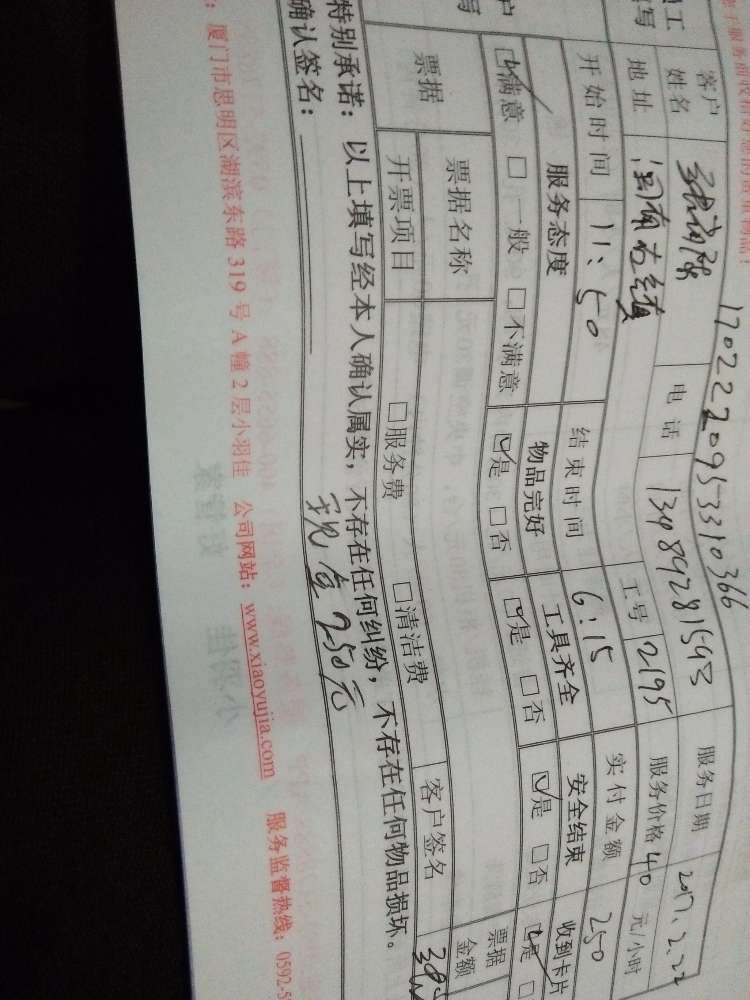 17022209533310366
员工
填写
客户
姓名
电话
13489281543
服务日期
2017.2.22
地址
工号
2195
服务价格 40 元/小时
开始时间
11:50
结束时间
6:15
实付金额
250
服务态度
物品完好
工具齐全
安全结束
收到卡片
☑满意 □一般 □不满意
☑是 □否
☑是 □否
☑是 □否
☑是 □
票据
票据名称
客户签名
票据
金额
开票项目
□服务费
□清洁费
特别承诺：以上填写经本人确认属实，不存在任何纠纷，不存在任何物品损坏。
确认签名：
现金250元
：厦门市思明区湖滨东路319号A幢2层小羽佳 公司网站：www.xiaoyujia.com 服务监督热线：0592-5